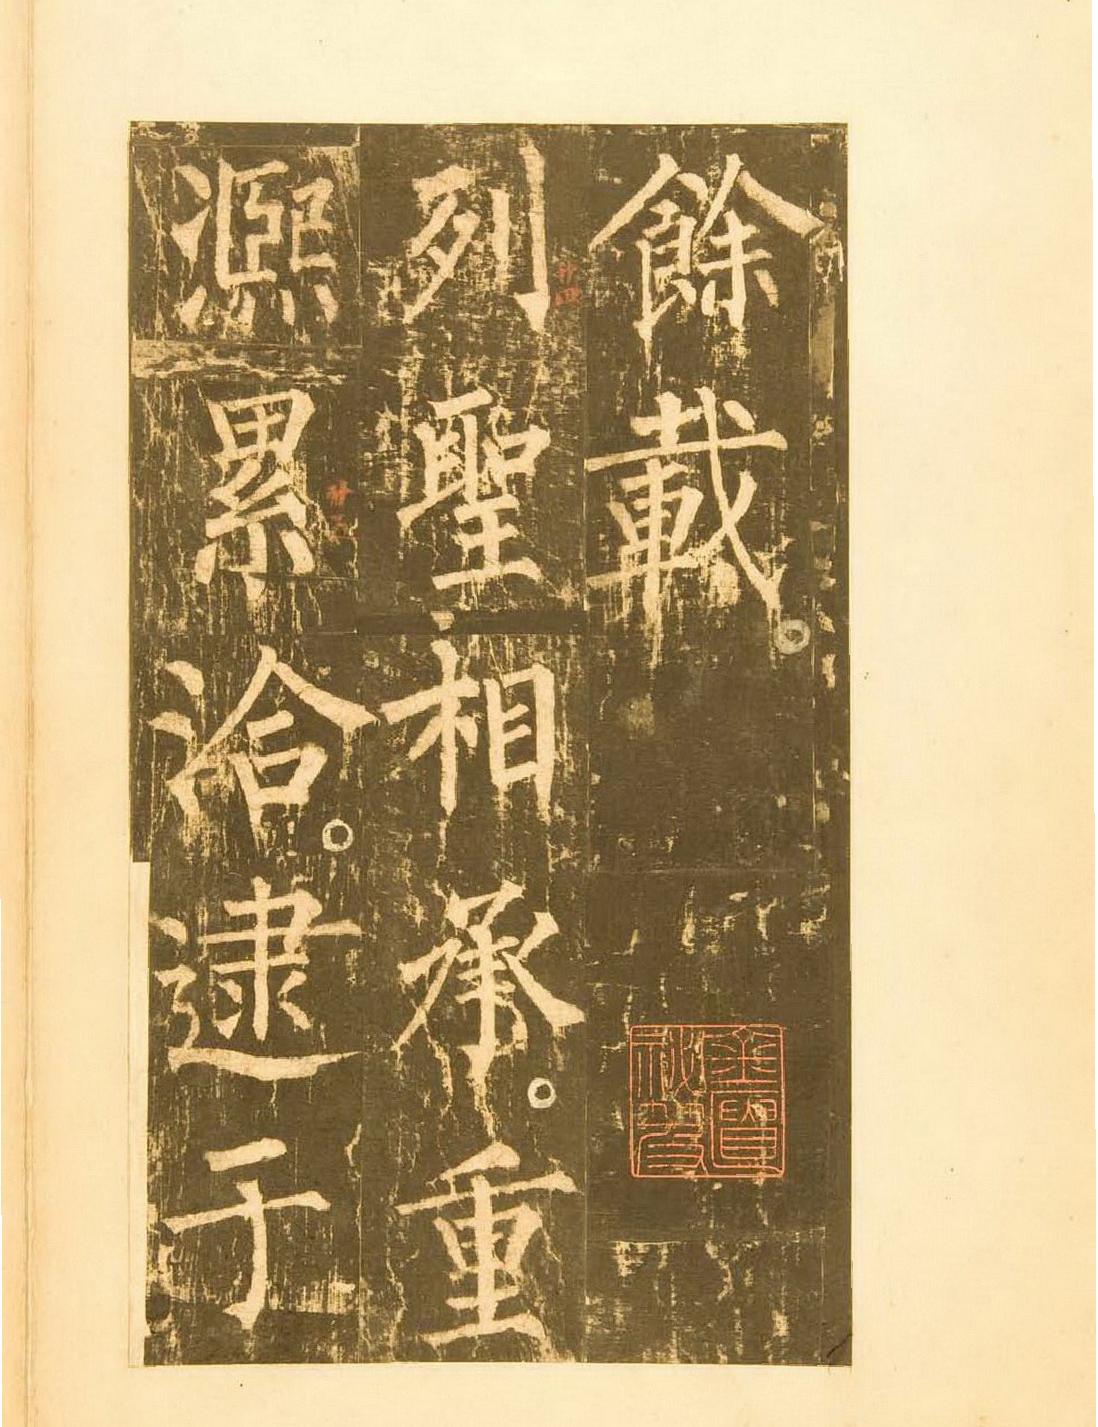 餘載
列聖相承重
熈累洽逮
于